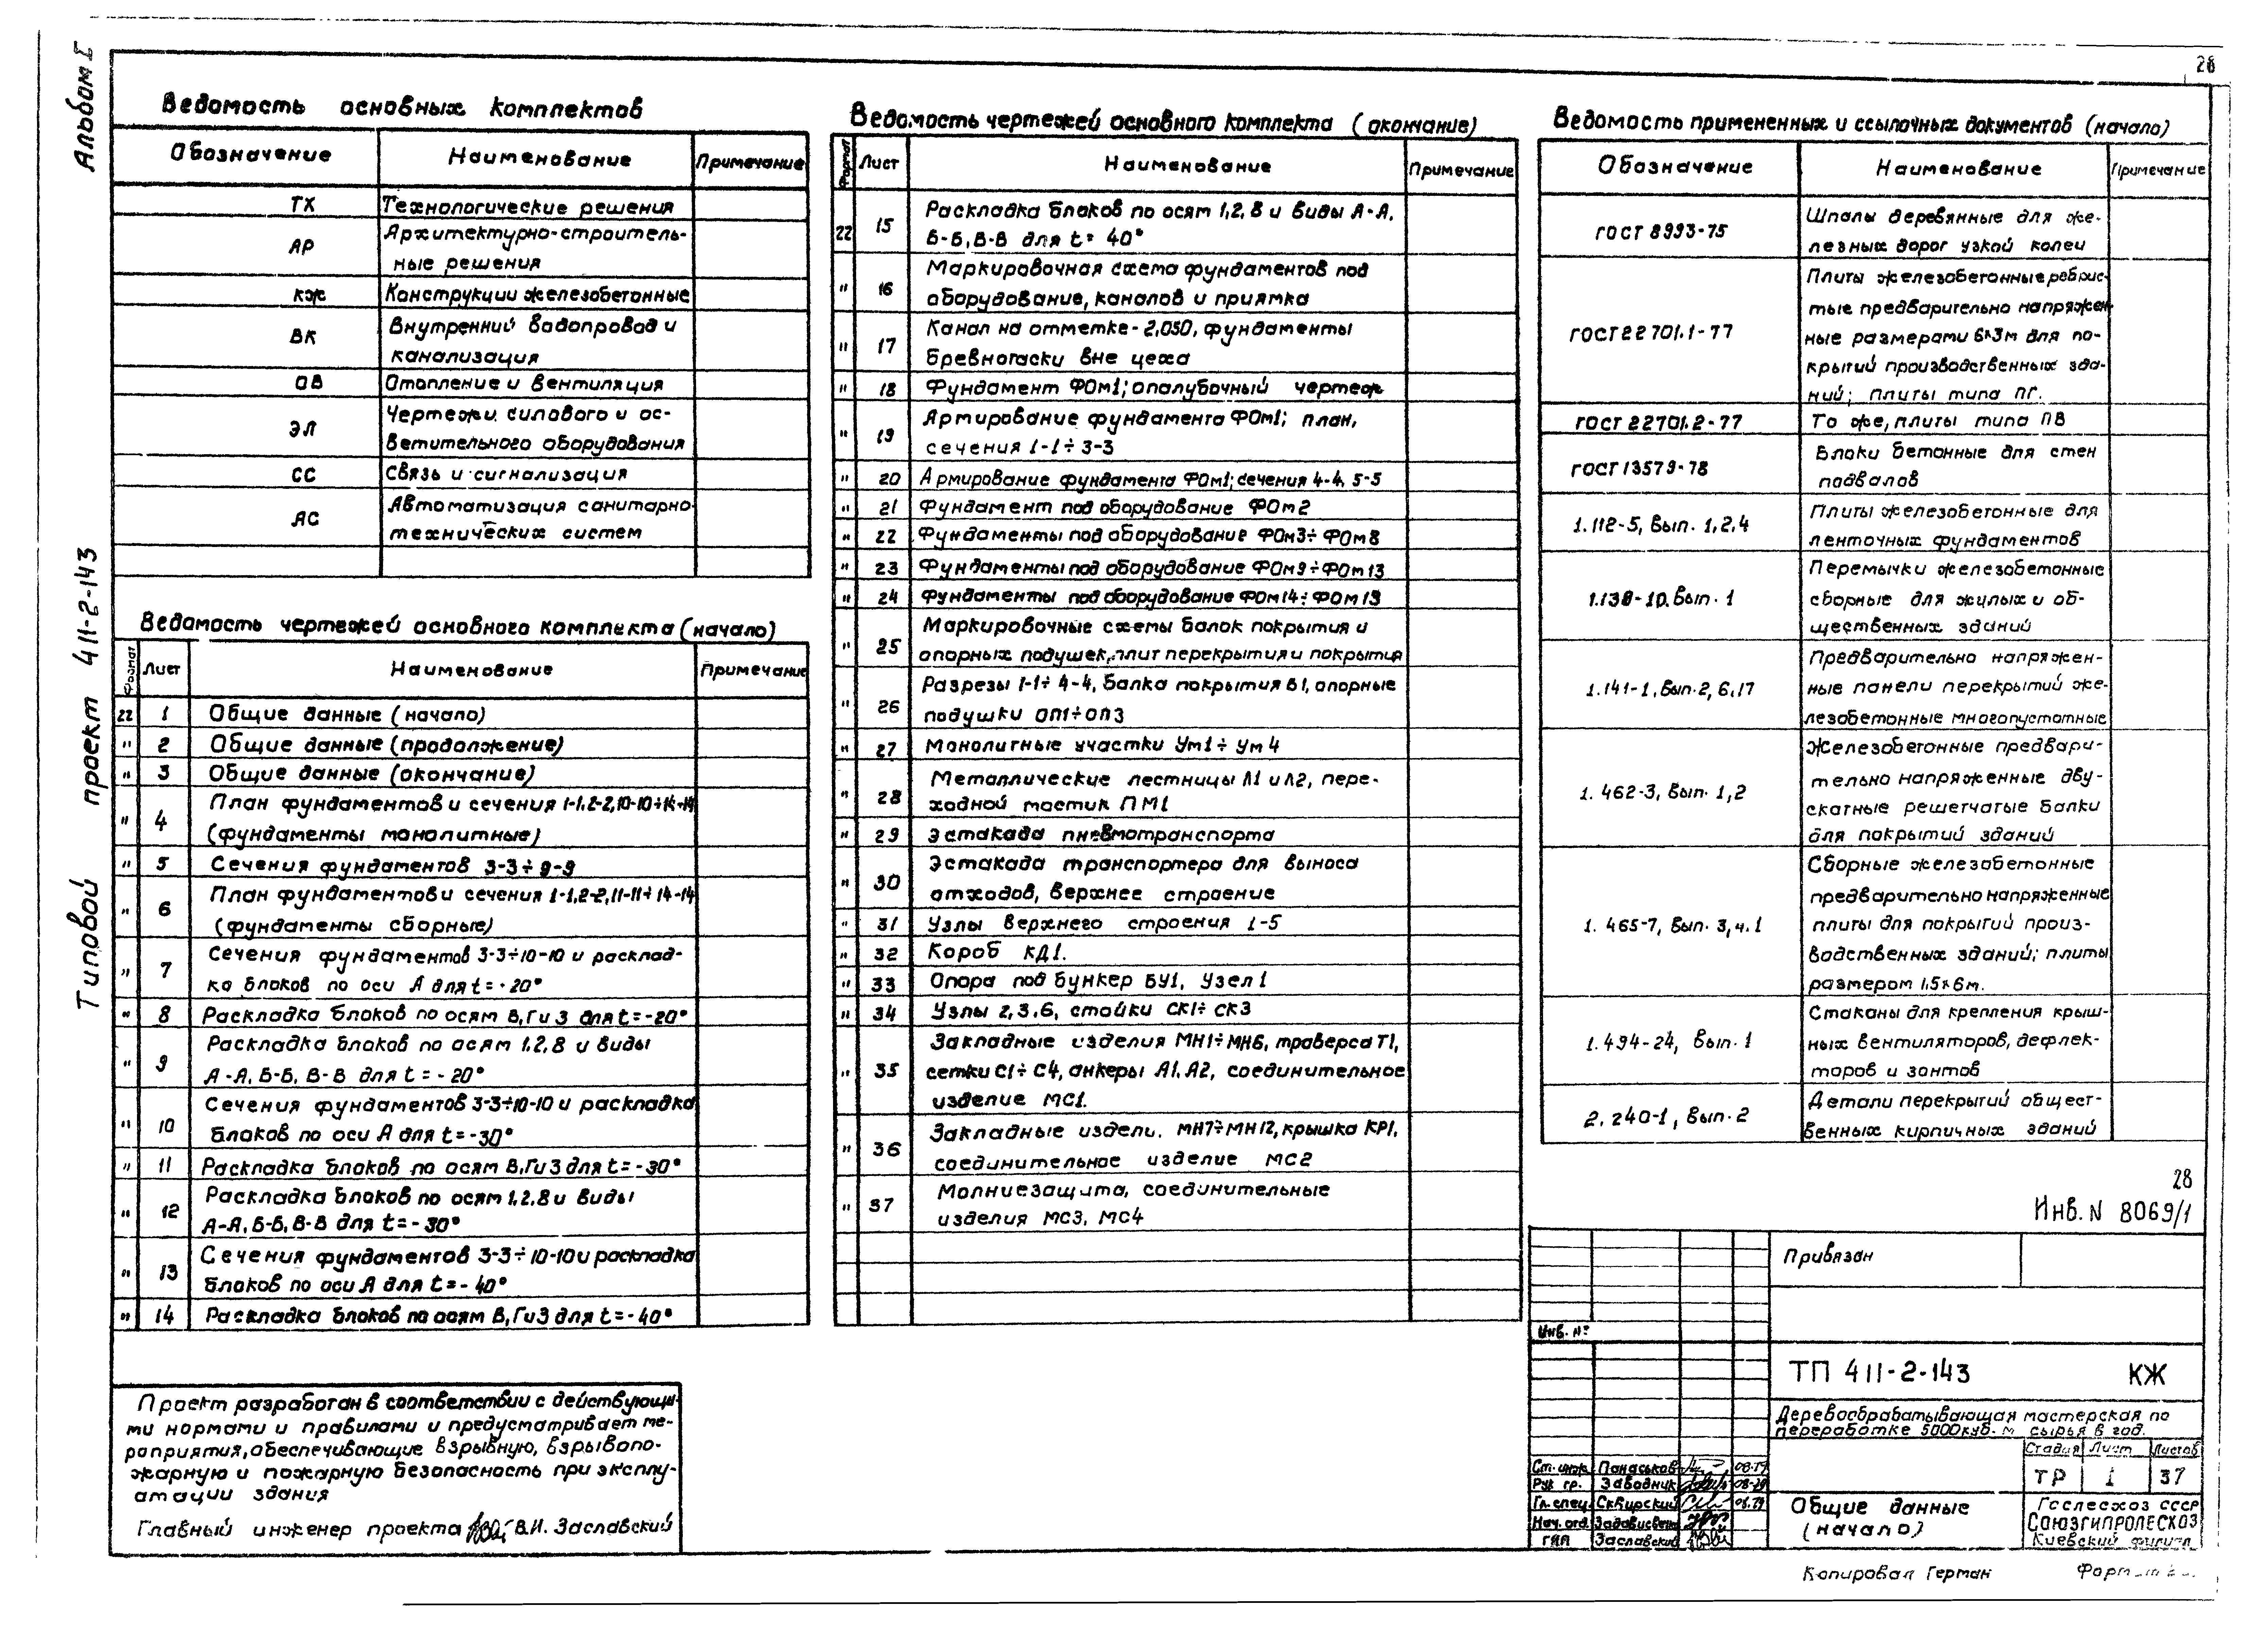 28
Альбом I
Типовой проект 411-2-143
Ведомость основных комплектов
Обозначение Наименование Примечание
ТХ Технологические решения
АР Архитектурно-строитель-
ные решения
КЖ Конструкции железобетонные
ВК Внутренний водопровод и
канализация
ОВ Отопление и вентиляция
ЭЛ Чертежи силового и ос-
ветительного оборудования
СС Связь и сигнализация
АС Автоматизация санитарно-
технических систем
Ведомость чертежей основного комплекта (начало)
Формат Лист Наименование Примечание
22 1 Общие данные (начало)
" 2 Общие данные (продолжение)
" 3 Общие данные (окончание)
" 4 План фундаментов и сечения 1-1, 2-2, 10-10÷14-14
(фундаменты монолитные)
" 5 Сечения фундаментов 3-3÷9-9
" 6 План фундаментов и сечения 1-1, 2-2, 11-11÷14-14
(фундаменты сборные)
" 7 Сечения фундаментов 3-3÷10-10 и расклад-
ка блоков по оси А для t=-20°
" 8 Раскладка блоков по осям В, Г и 3 для t=-20°
" 9 Раскладка блоков по осям 1, 2, 8 и виды
А-А, Б-Б, В-В для t=-20°
" 10 Сечения фундаментов 3-3÷10-10 и раскладка
блоков по оси А для t=-30°
" 11 Раскладка блоков по осям В, Г и 3 для t=-30°
" 12 Раскладка блоков по осям 1, 2, 8 и виды
А-А, Б-Б, В-В для t=-30°
" 13 Сечения фундаментов 3-3÷10-10 и раскладка
блоков по оси А для t=-40°
" 14 Раскладка блоков по осям В, Г и 3 для t=-40°
Проект разработан в соответствии с действующи-
ми нормами и правилами и предусматривает ме-
роприятия, обеспечивающие взрывную, взрывопо-
жарную и пожарную безопасность при эксплу-
атации здания
Главный инженер проекта В.И. Заславский
Ведомость чертежей основного комплекта (окончание)
Формат Лист Наименование Примечание
22 15 Раскладка блоков по осям 1, 2, 8 и виды А-А,
Б-Б, В-В для t= 40°
" 16 Маркировочная схема фундаментов под
оборудование, каналов и приямка
" 17 Канал на отметке -2,050, фундаменты
бревнотаски вне цеха
" 18 Фундамент ФОм1; опалубочный чертеж
" 19 Артирование фундамента ФОм1; план,
сечения 1-1÷3-3
" 20 Армирование фундамента ФОм1; сечения 4-4, 5-5
" 21 Фундамент под оборудование ФОм2
" 22 Фундаменты под оборудование ФОм3÷ФОм8
" 23 Фундаменты под оборудование ФОм9÷ФОм13
" 24 Фундаменты под оборудование ФОм14÷ФОм19
" 25 Маркировочные схемы балок покрытия и
опорных подушек, плит перекрытия и покрытия
" 26 Разрезы 1-1÷4-4, балка покрытия Б1, опорные
подушки ОП1÷ОП3
" 27 Монолитные участки Ум1÷Ум4
" 28 Металлические лестницы Л1 и Л2, пере-
ходной мостик ПМ1
" 29 Эстакада пневмотранспорта
" 30 Эстакада транспортера для выноса
отходов, верхнее строение
" 31 Узлы верхнего строения 1-5
" 32 Короб КД1.
" 33 Опора под бункер БУ1, Узел 1
" 34 Узлы 2, 3, 6, стойки СК1÷СК3
" 35 Закладные изделия МН1÷МН6, траверса Т1,
сетки С1÷С4, анкеры А1, А2, соединительное
изделие МС1.
" 36 Закладные издели. МН7÷МН12, крышка КР1,
соединительное изделие МС2
" 37 Молниезащита, соединительные
изделия МС3, МС4
Ведомость примененных и ссылочных документов (начало)
Обозначение Наименование Примечание
ГОСТ 8993-75 Шпалы деревянные для же-
лезных дорог узкой колеи
ГОСТ 22701.1-77 Плиты железобетонные ребрис-
тые предварительно напряжен-
ные размерами 6×3м для по-
крытий производственных зда-
ний; плиты типа ПГ.
ГОСТ 22701.2-77 То же, плиты типа ПВ
ГОСТ 13579-78 Блоки бетонные для стен
подвалов
1.112-5, Вып. 1,2,4 Плиты железобетонные для
ленточных фундаментов
1.138-10, Вып. 1 Перемычки железобетонные
сборные для жилых и об-
щественных зданий
1.141-1, Вып. 2, 6, 17 Предварительно напряжен-
ные панели перекрытий же-
лезобетонные многопустотные
1.462-3, Вып. 1,2 Железобетонные предвари-
тельно напряженные дву-
скатные решетчатые балки
для покрытий зданий
1.465-7, Вып. 3, ч.1 Сборные железобетонные
предварительно напряженные
плиты для покрытий произ-
водственных зданий; плиты
размером 1,5×6м.
1.494-24, Вып. 1 Стаканы для крепления крыш-
ных вентиляторов, дефлек-
торов и зонтов
2.240-1, Вып. 2 Детали перекрытий общест-
венных кирпичных зданий
28
Инв. N 8069/1
Привязан
Инв. №
ТП 411-2-143 КЖ
Деревообрабатывающая мастерская по
переработке 5000куб. м сырья в год.
Стадия Лист Листов
ТР 1 37
Ст. инж. Панаськов 08.79
Рук. гр. Заводник 08.79
Гл. спец. Сквирский 08.79
Нач. отд.
Заславский
Общие данные
(начало)
Гослесхоз СССР
СОЮЗГИПРОЛЕСХОЗ
Киевский филиал
Копировал Герман